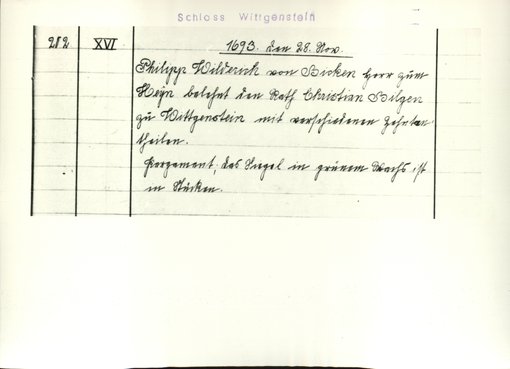 Schloss Wittgenstein
212 XVI 1693. den 28. Nov.
Philipp Wilderich von Bicken Herr zum
Heyn belehnt den Rath Christian Bilgen
zu Wittgenstein mit verschiedenen Zehnten
theilen.
Pergament; das Siegel in grünem Wachs ist
in Stücken.